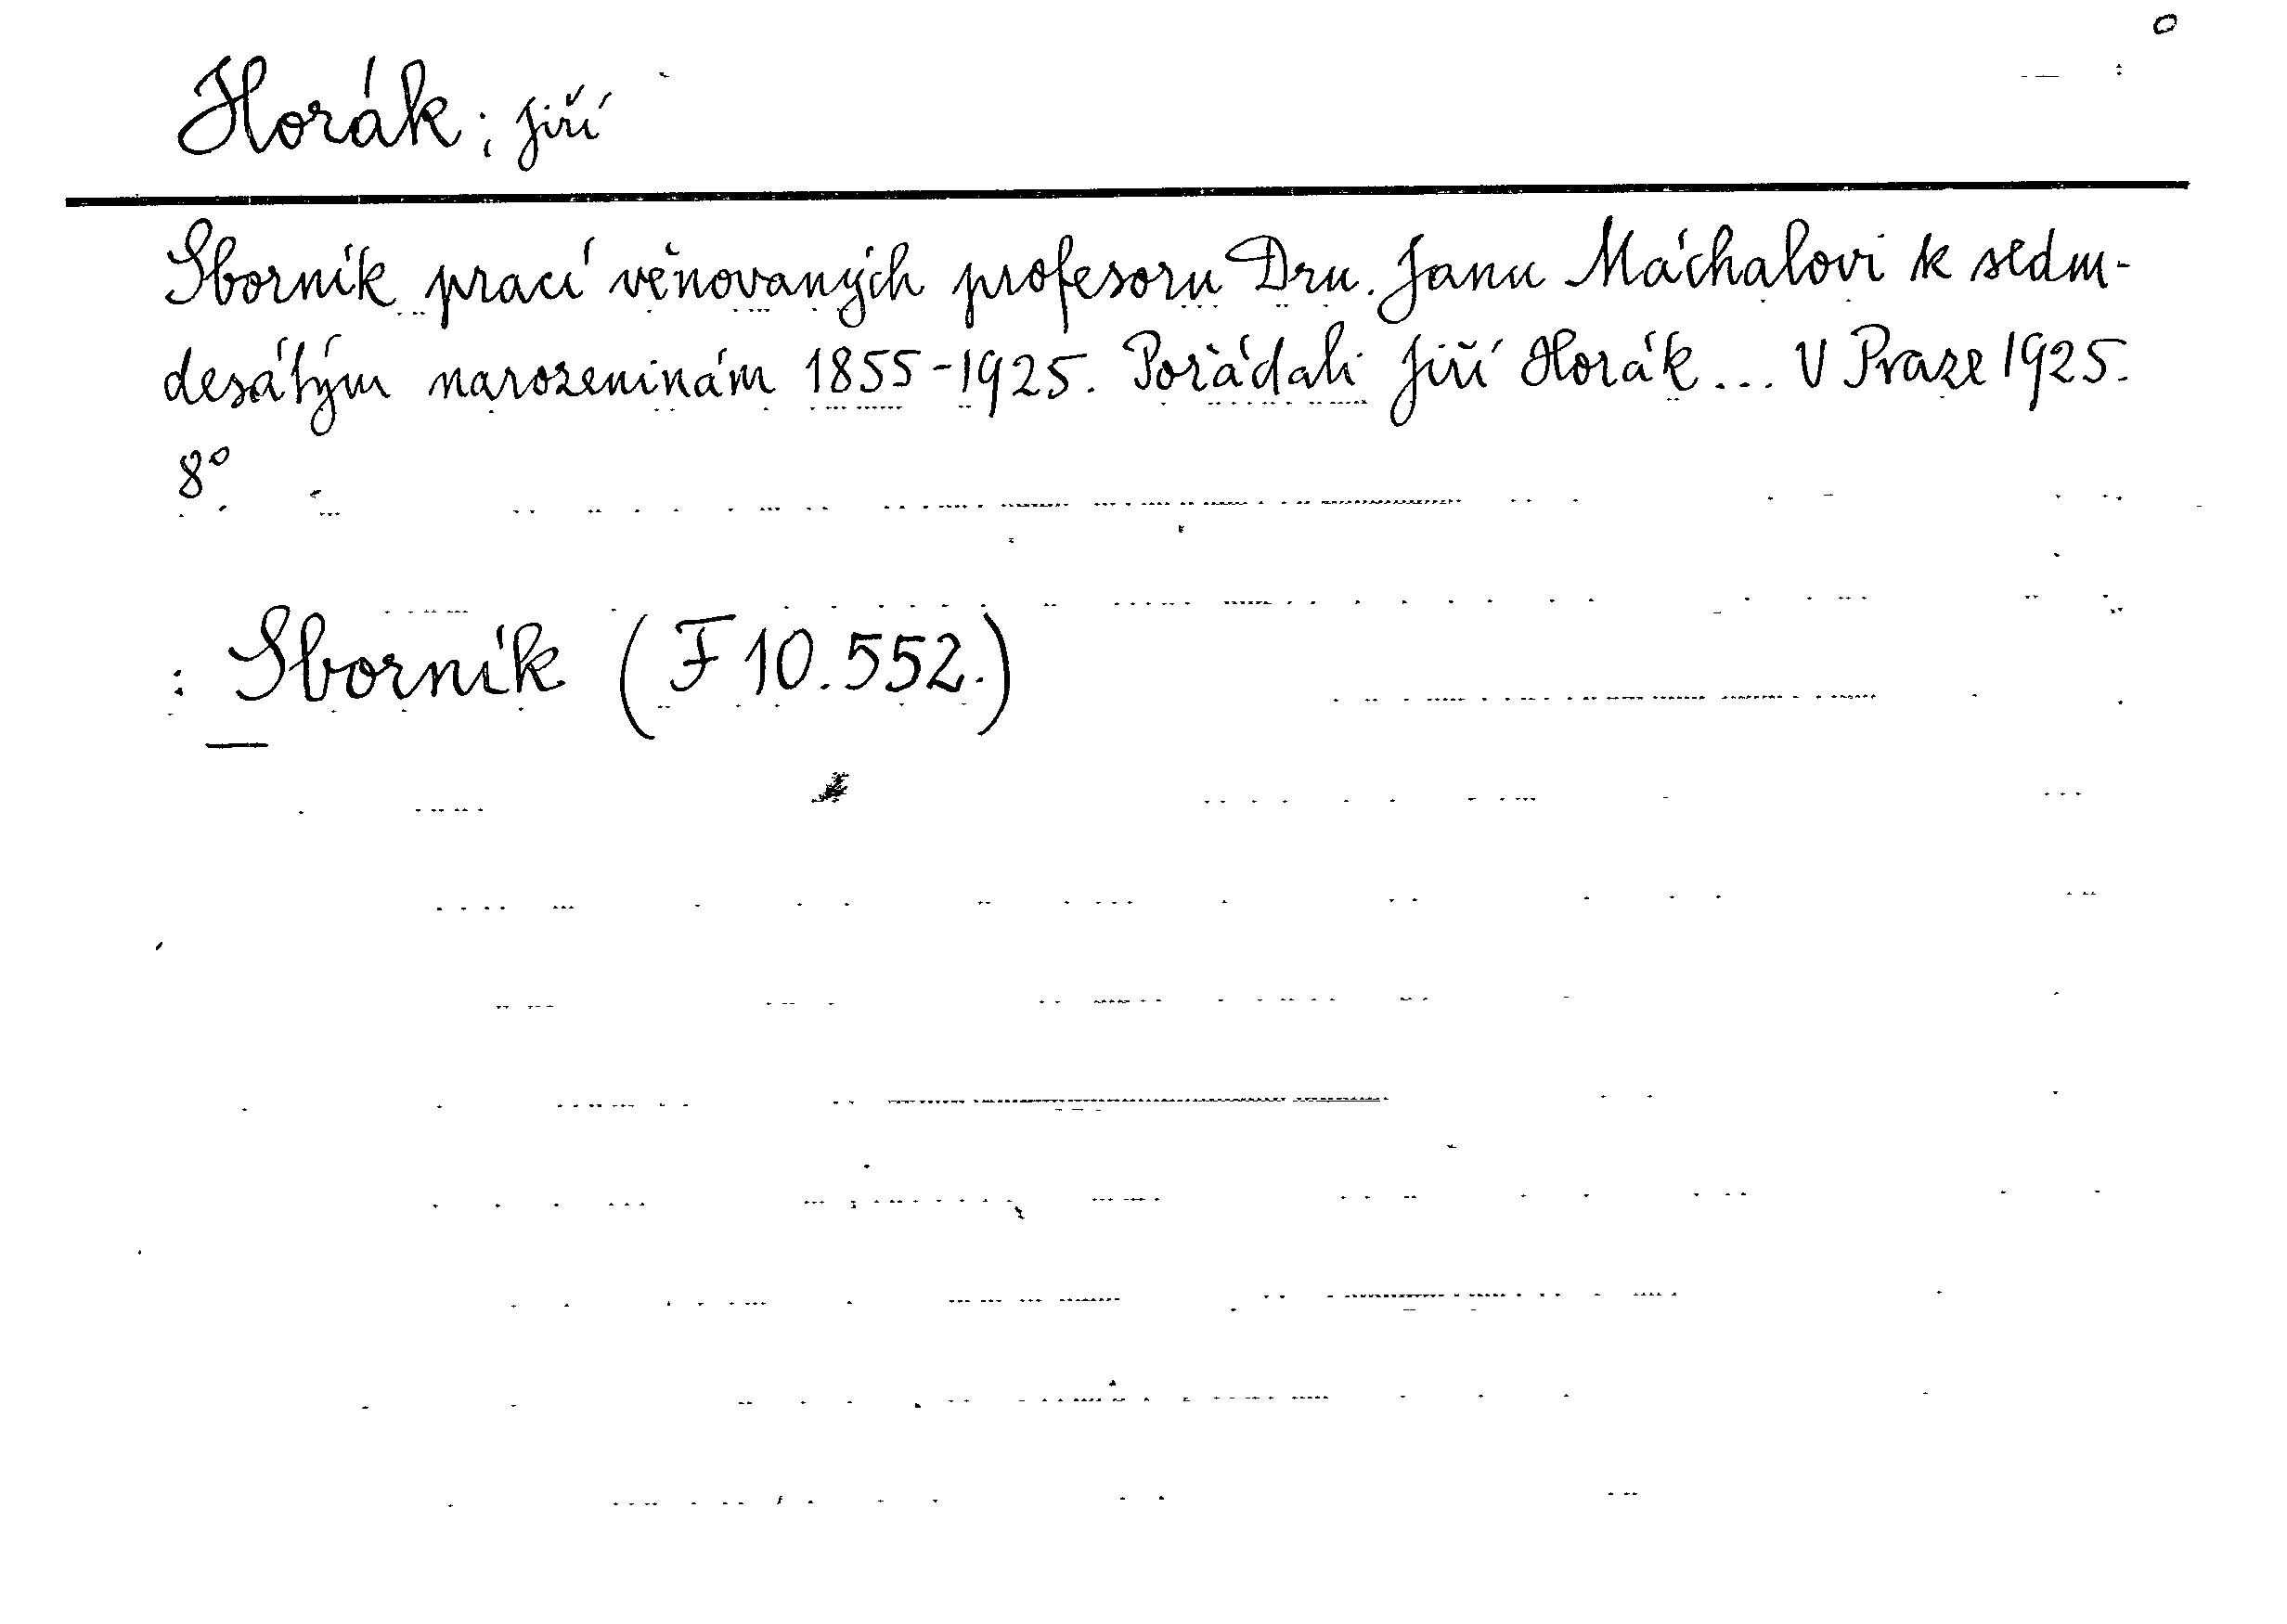 Horák; Jiří
Sborník prací věnovaných profesoru Dru. Janu Máchalovi k sedm-
desátým narozeninám 1855-1925. Pořádali Jiří Horák... V Praze 1925.
8°
: Sborník (F 10.552.)